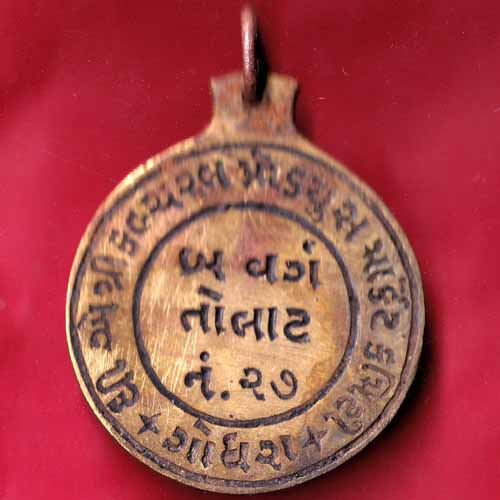 ધી એગ્રીકલ્ચરલ પ્રોડયુસ માર્કેટ કમિટી
+ ગોધરા +
બ વર્ગ
તોલાટ
નં. ૨૭